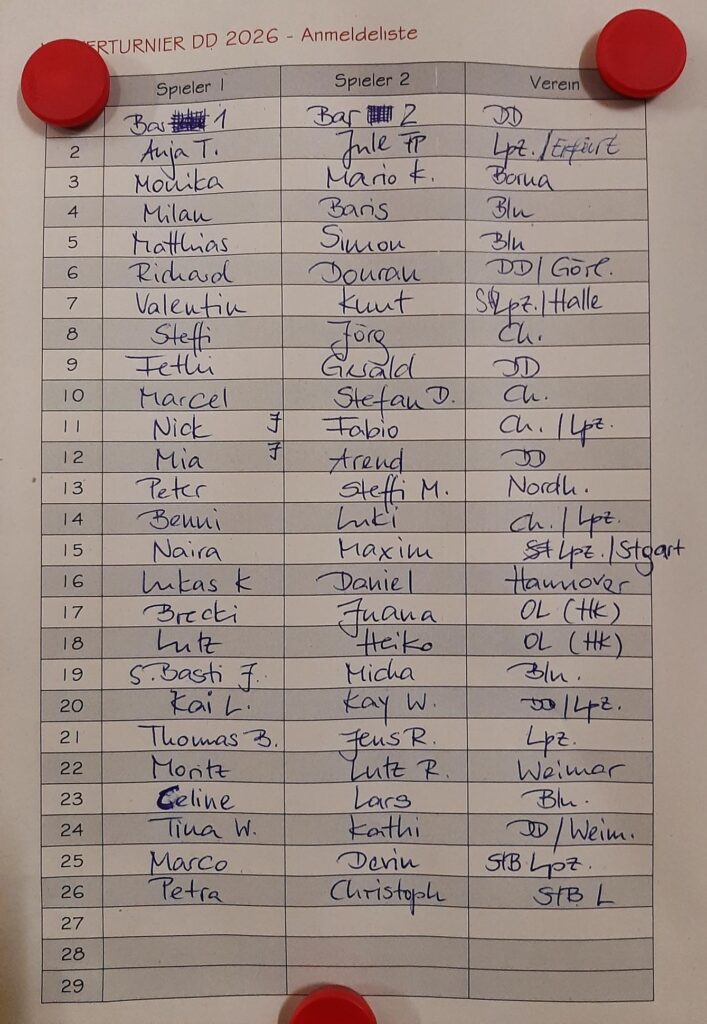 ERTURNIER DD 2026 - Anmeldeliste
Spieler 1 Spieler 2 Verein
Bar 1 Bar 2 DD
2 Anja T. Jule FP Lpz./Erfurt
3 Monika Mario K. Borna
4 Milan Baris Bln
5 Matthias Simon Bln
6 Richard Douran DD/Görl.
7 Valentin Knut Lpz./Halle
8 Steffi Jörg Ch.
9 Fethi Gerald DD
10 Marcel Stefan D. Ch.
11 Nick J Fabio Ch./Lpz.
12 Mia J Arend DD
13 Peter Steffi M. Nordh.
14 Benni Luki Ch./Lpz.
15 Naira Maxim Lpz./Stgart
16 Lukas K Daniel Hannover
17 Brecki Juana OL (HK)
18 Lutz Heiko OL (HK)
19 S. Basti J. Micha Bln.
20 Kai L. Kay W. DD/Lpz.
21 Thomas B. Jens R. Lpz.
22 Moritz Lutz R. Weimar
23 Celine Lars Bln.
24 Tina W. Kathi DD/Weim.
25 Marco Devin StB Lpz.
26 Petra Christoph StB L
27
28
29